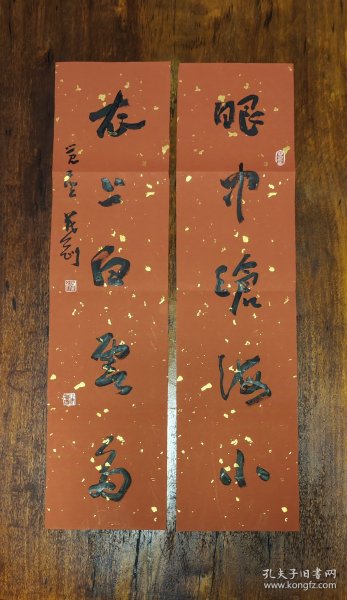 眼中滄海小
衣上白雲多
孔夫子旧书网
www.kongfz.com